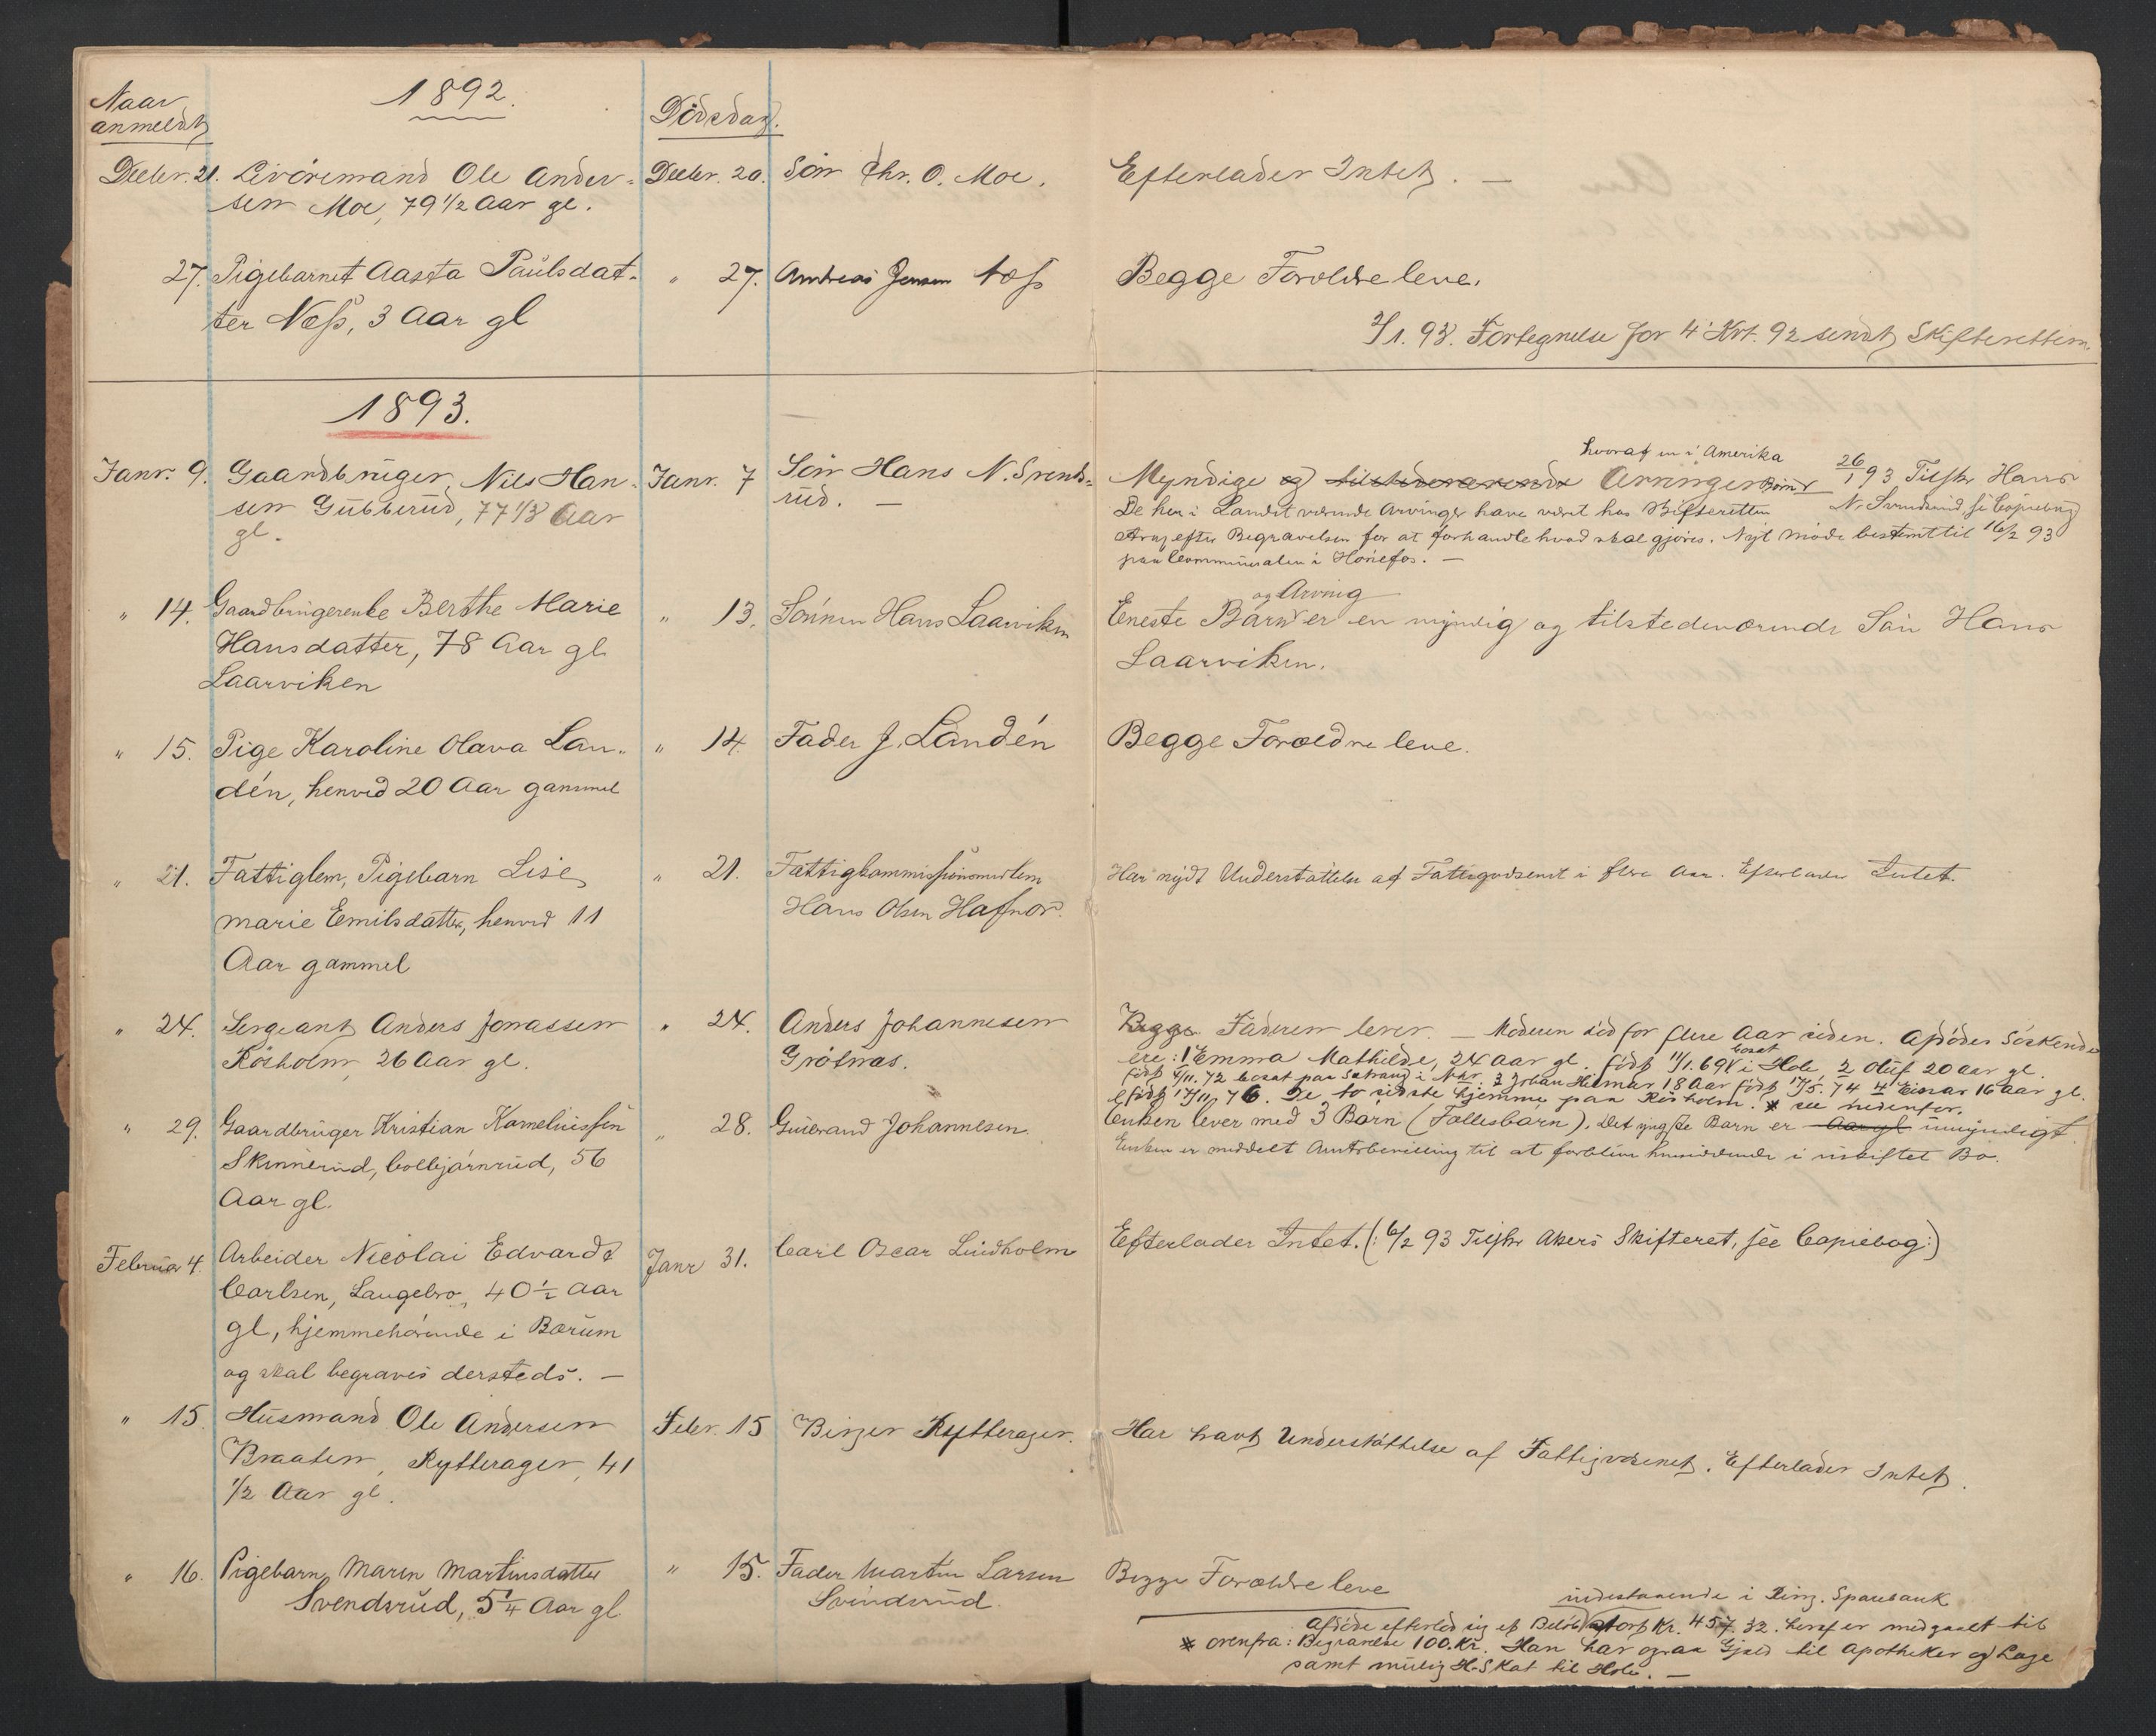 Naar
anmeldt
1892.
Dødsdag.
Decbr. 21. Livøremand Ole Ander-
sen Moe, 79 1/2 Aar gl.
Decbr. 20. Søn Chr. O. Moe.
Efterlader Intet. —
27. Pigebarnet Aasta Paulsdat-
ter Næss, 3 Aar gl
" 27. Andreas Jensen Næss
Begge Forældre leve.
2/1. 93. Fortegnelse for 4' Kvt. 92 sendt Skifteretten.
1893.
Janr. 9. Gaardbruger Nils Han-
sen Gubberud, 77 1/3 Aar
gl.
Janr. 7 Søn Hans N. Svends-
rud. —
hvoraf en i Amerika
Myndige og tilstedeværende Arvinger Børn 26/1 93 Tilskr. Hans
N. Svendsrud, se Copiebog
De her i Landet værende Arvinger have været hos Skifteretten
strax efter Begravelsen for at forhandle hvad skal gjøres. Nyt Møde bestemt til 16/2 93
paa Communalen i Hønefos. —
" 14. Gaardbrugerenke Berthe Marie
Hansdatter, 78 Aar gl.
Laarviken
" 13. Sønnen Hans Laarviken
og Arving
Eneste Barn er en myndig og tilstedeværende Søn Hans
Laarviken.
" 15. Pige Karoline Olava Lan-
dén, henved 20 Aar gammel
" 14. Fader J. Landén
Begge Forældre leve.
" 21. Fattiglem, Pigebarn Lise
Marie Emilsdatter, henved 11
Aar gammel
" 21. Fattigkommissionsmedlem
Hans Olsen Hafnor.
Har nydt Understøttelse af Fattigvæsenet i flere Aar. Efterlader Intet.
" 24. Sergeant Anders Jonassen
Røsholm, 26 Aar gl.
" 24. Anders Johannesen
Grøtnæs.
Begge Faderen lever. — Moderen død for flere Aar siden. Afdødes Søskende
ere: 1 Emma Mathilde, 24 Aar gl. født 11/1.69 bosat i Hole, 2 Oluf 20 aar gl.
født 4/11. 72 bosat paa Søtrang i Nhr. 3 Johan Hilmar 18 Aar født 17/5. 74 4 Einar 16 Aar gl.
født 17/11 76. De to sidste hjemme paa Røsholm. * see nedenfor.
" 29. Gaardbruger Kristian Korneliussen
Skinnerud, Colbjørnrud, 56
Aar gl.
" 28. Gulbrand Johannesen
Enken lever med 3 Børn (Fællesbørn). Det yngste Barn er Aar gl umyndigt.
Enken er meddelt Amtsbevilling til at forblive hensiddende i uskiftet Bo.
Februar 4. Arbeider Nicolai Edvard
Carlsen, Laugebro, 40 1/2 Aar
gl, hjemmehørende i Bærum
og skal begraves dersteds. —
Janr 31. Carl Oscar Lindholm
Efterlader Intet. (: 6/2 93 Tilskr Akers Skifteret, see Copiebog:)
" 15. Husmand Ole Andersen
Braaten, Rytterager, 41
1/2 Aar gl.
Febr. 15 Birger Rytterager.
Har havt Understøttelse af Fattigvæsenet. Efterlader Intet.
" 16. Pigebarn Maren Martinsdatter
Svendsrud, 5 1/4 Aar gl
" 15. Fader Martin Larsen
Svendsrud.
Begge Forældre leve
indestaaende i Ring. Sparebank
Afdøde efterlod sig et Beløb stort Kr. 457.32. heraf er medgaaet til
* ovenfra: Begravelse 100.Kr. Han har ogsaa Gjæld til Apotheker og Læge
samt mulig H-Skat til Hole. —